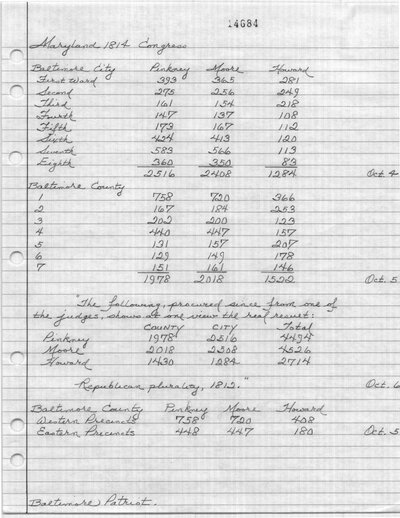 14684
Maryland 1814 Congress
Baltimore City Pinkney Moore Howard
First Ward 393 365 281
Second 275 256 249
Third 161 154 218
Fourth 147 137 108
Fifth 173 167 112
Sixth 424 413 120
Seventh 583 566 113
Eighth 360 350 83
2516 2408 1284 Oct. 4
Baltimore County
1 758 720 366
2 167 184 253
3 202 200 123
4 440 447 157
5 131 157 207
6 129 149 178
7 151 161 146
1978 2018 1522 Oct. 5
"The following, procured since from one of
the judges, shows at one view the real result:
County City Total
Pinkney 1978 2516 4494
Moore 2018 2508 4526
Howard 1430 1284 2714
Republican plurality, 1812." Oct. 6
Baltimore County Pinkney Moore Howard
Western Precincts 758 720 408
Eastern Precincts 448 447 180 Oct. 5
Baltimore Patriot.